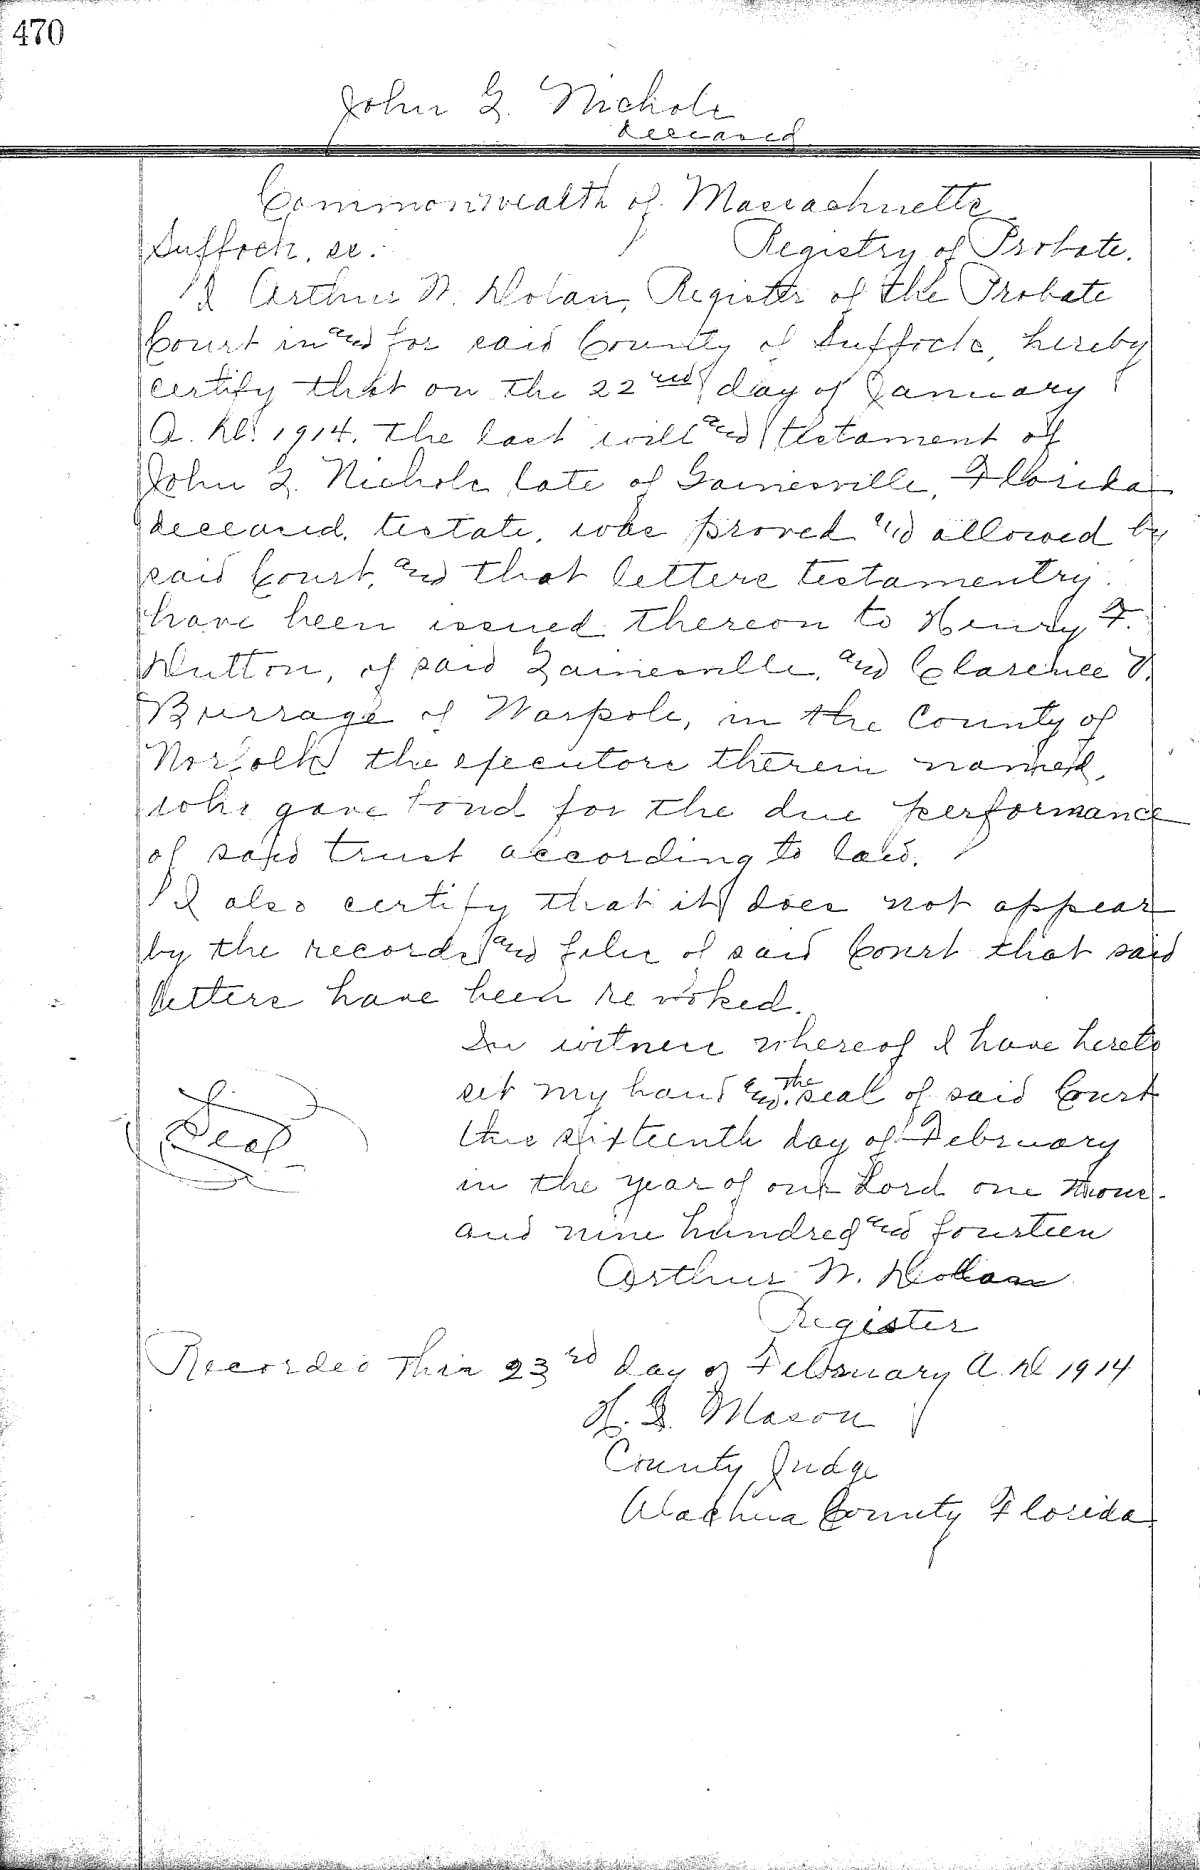 470
John G. Nichols
deceased
Commonwealth of Massachusetts
Suffolk, ss. Registry of Probate.
I Arthur W. Dolan, Register of the Probate
Court in and for said County of Suffolk, hereby
certify that on the 22nd day of January
A. D. 1914. the last will and testament of
John G. Nichols late of Gainesville, Florida
deceased, testate, was proved and allowed by
said Court, and that letters testamentry
have been issued thereon to Henry F.
Dutton, of said Gainesville, and Clarence V.
Burrage of Warpole, in the County of
Norfolk the executors therein named,
who gave bond for the due performance
of said trust according to law.
I also certify that it does not appear
by the records and files of said Court that said
letters have been revoked.
In witness whereof I have hereto
set my hand and the seal of said Court
Seal
this sixteenth day of February
in the year of our Lord one thous-
and nine hundred and fourteen
Arthur W. Dolan
Register
Recorded this 23rd day of February A. D. 1914
H. G. Mason
County Judge
Alachua County Florida